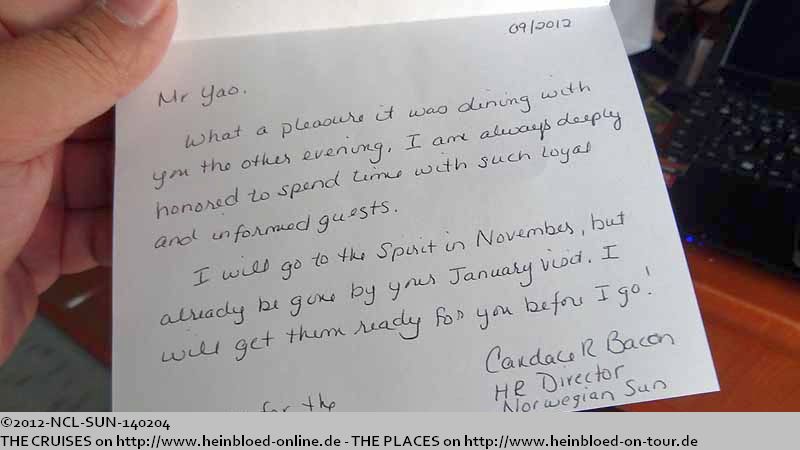 09/2012
Mr Yao.
What a pleasure it was dining with
you the other evening. I am always deeply
honored to spend time with such loyal
and informed guests.
I will go to the Spirit in November, but
already be gone by your January visit. I
will get them ready for you before I go!
Candace R Bacon
HR Director
Norwegian Sun
for the
©2012-NCL-SUN-140204
THE CRUISES on http://www.heinbloed-online.de - THE PLACES on http://www.heinbloed-on-tour.de